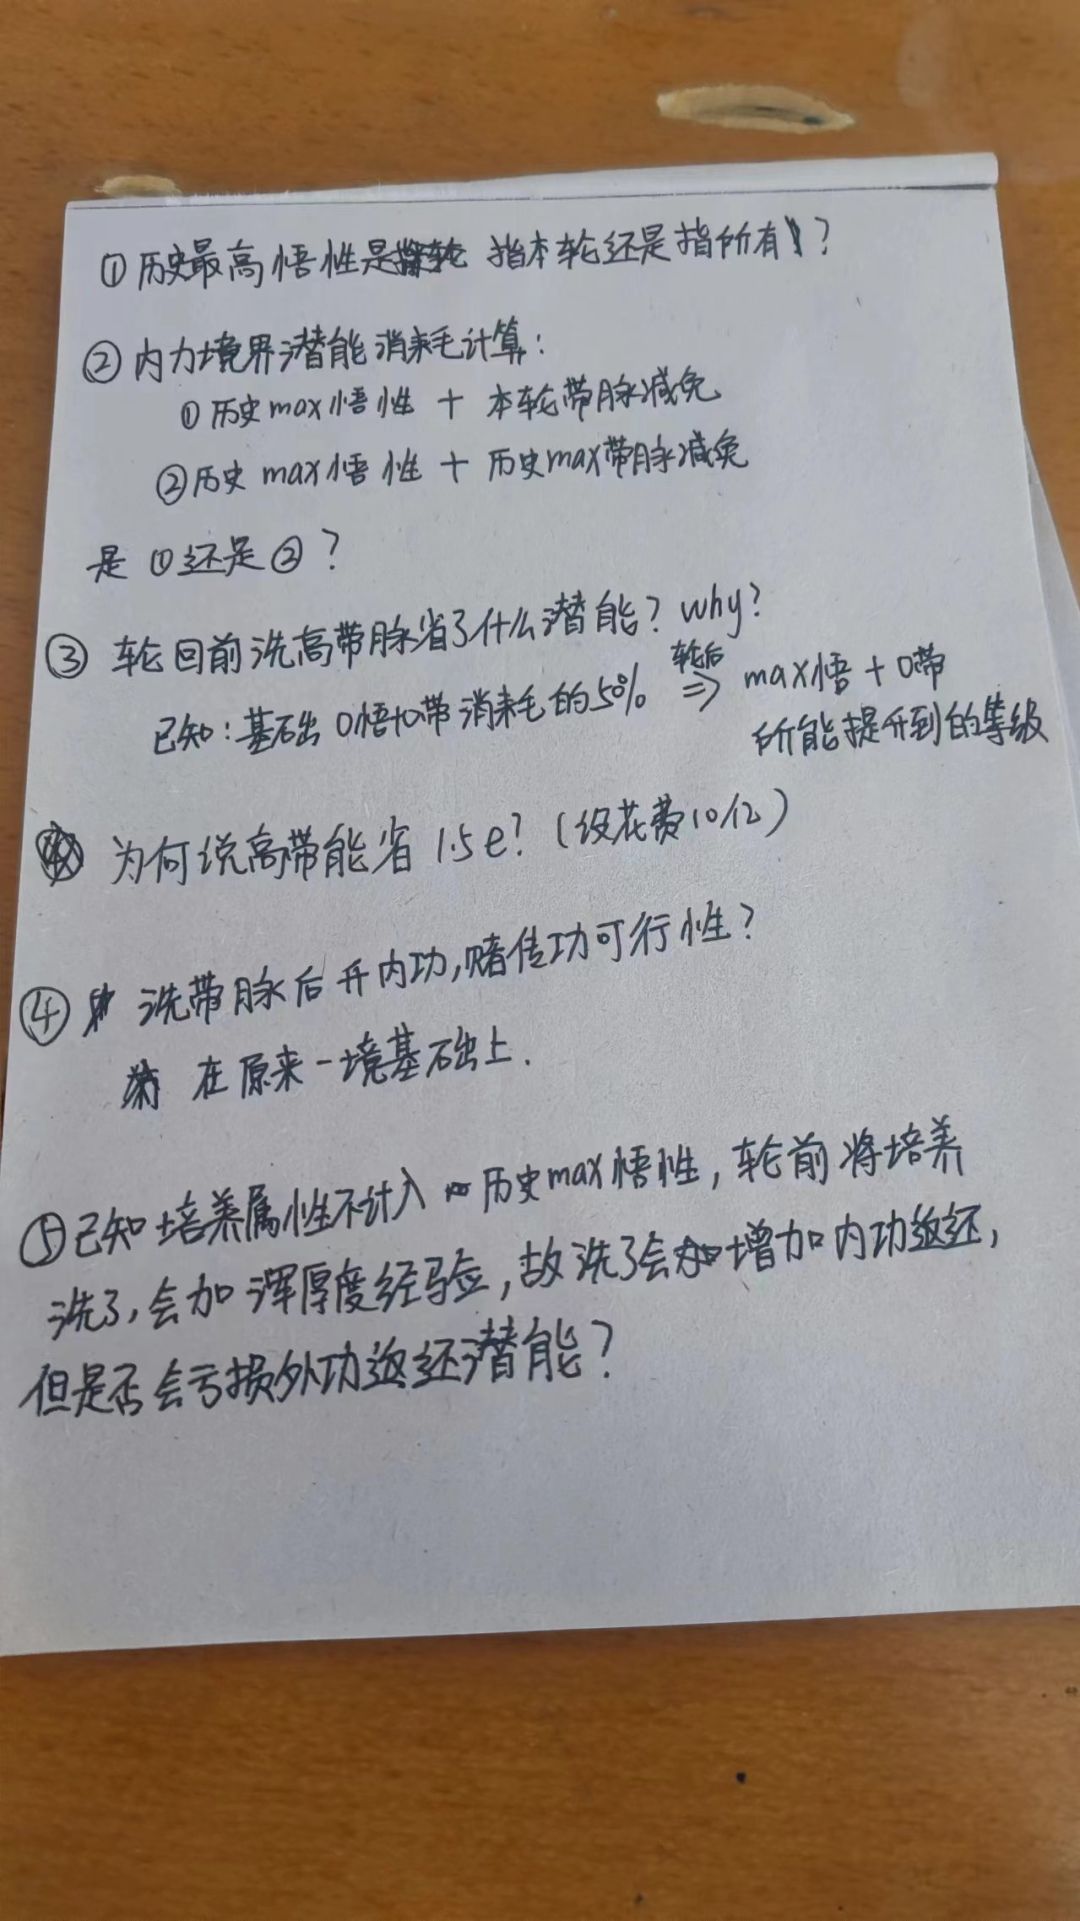 ①历史最高悟性是 指本轮还是指所有?
②内力境界潜能消耗计算:
①历史max悟性 + 本轮带脉减免
②历史max悟性 + 历史max带脉减免
是①还是②?
③轮回前洗高带脉省了什么潜能?why?
已知:基础0悟0带消耗的50% 轮后⇒ max悟+0带
所能提升到的等级
为何说高带能省1.5e?(设花费10亿)
④ 洗带脉后开内功,赌传功可行性?
在原来一境基础上.
⑤已知培养属性不计入 历史max悟性,轮前将培养
洗了,会加浑厚度经验,故洗了会增加内功返还,
但是否会亏损外功返还潜能?